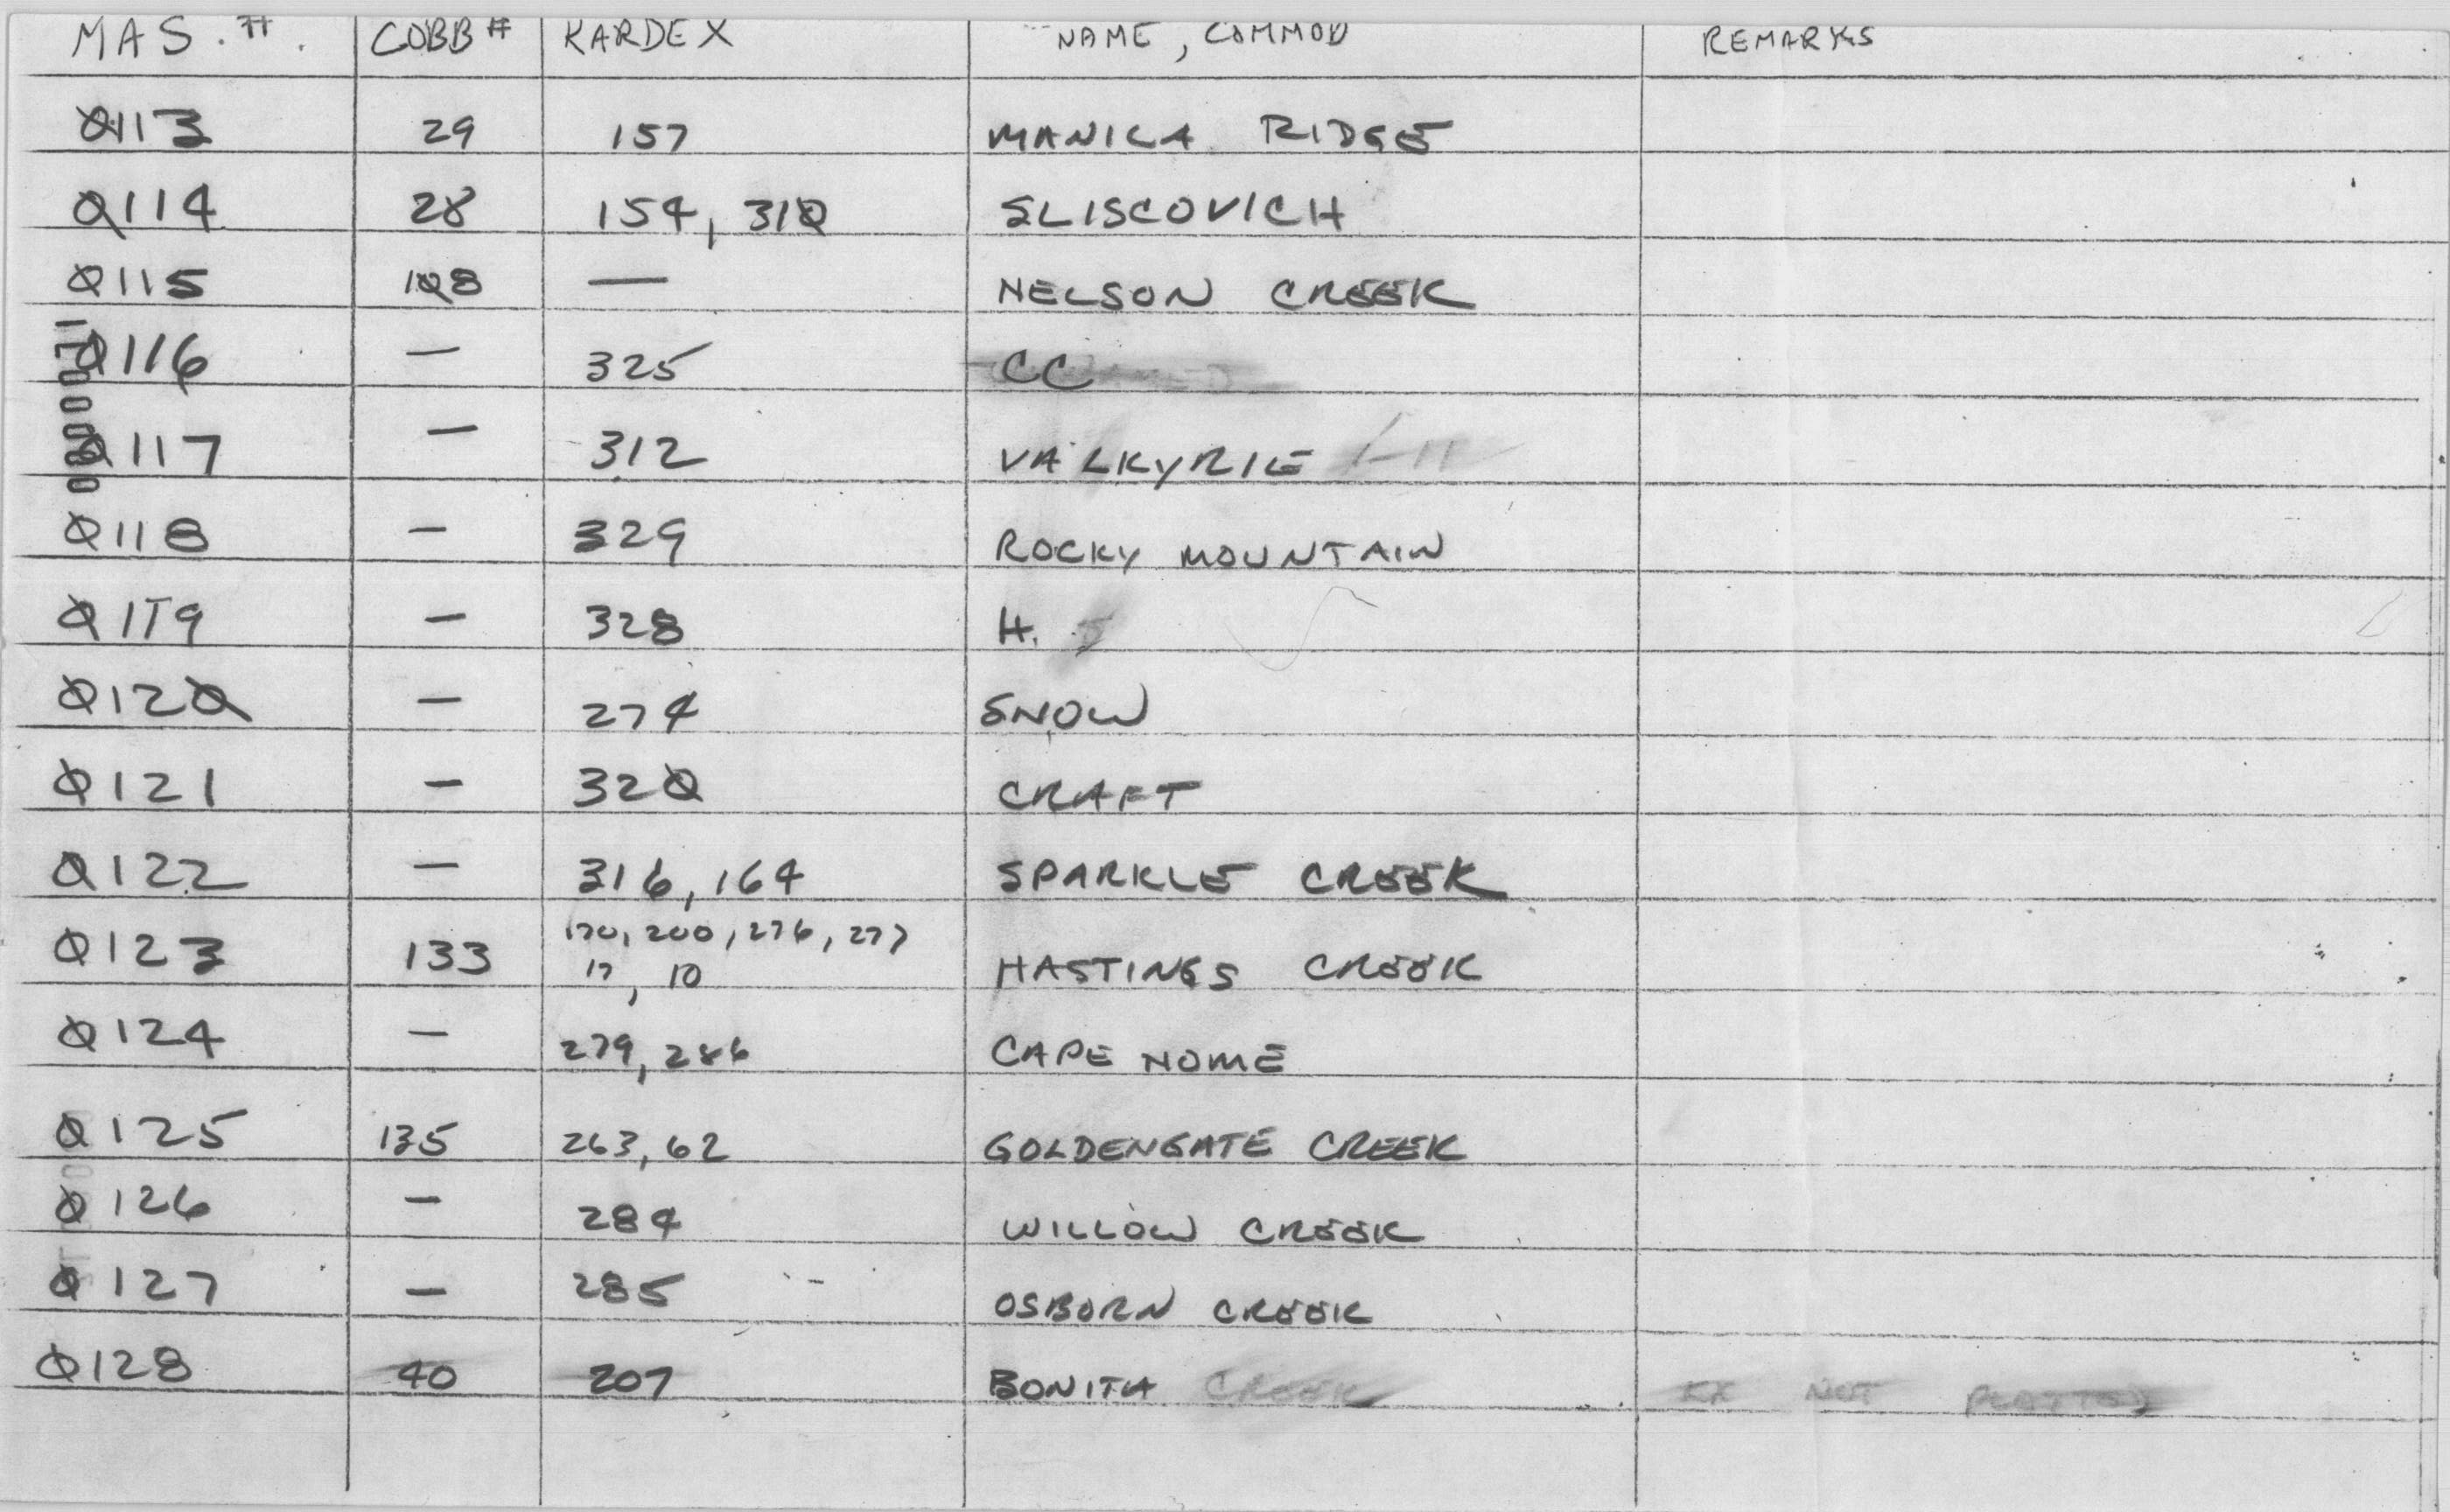 MAS. #. COBB # KARDEX NAME, COMMOD REMARKS
0113 29 157 MANILA RIDGE
0114 28 154, 310 SLISCOVICH
0115 108 — NELSON CREEK
0116 — 325 CC
0117 — 312 VALKYRIE
0118 — 329 ROCKY MOUNTAIN
0119 — 328 H.
0120 — 274 SNOW
0121 — 320 CRAFT
0122 — 316, 164 SPARKLE CREEK
0123 133 170, 200, 276, 277
17, 10 HASTINGS CREEK
0124 — 279, 286 CAPE NOME
0125 135 263, 62 GOLDENGATE CREEK
0126 — 284 WILLOW CREEK
0127 — 285 OSBORN CREEK
0128 40 207 BONITA CREEK KX NOT PLOTTED